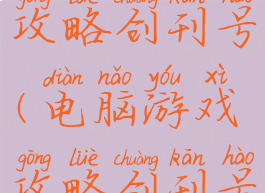 gōng lüè chuàng kān hào
攻略创刊号
diàn nǎo yóu xì
(电脑游戏
gōng lüè chuàng kān hào
攻略创刊号